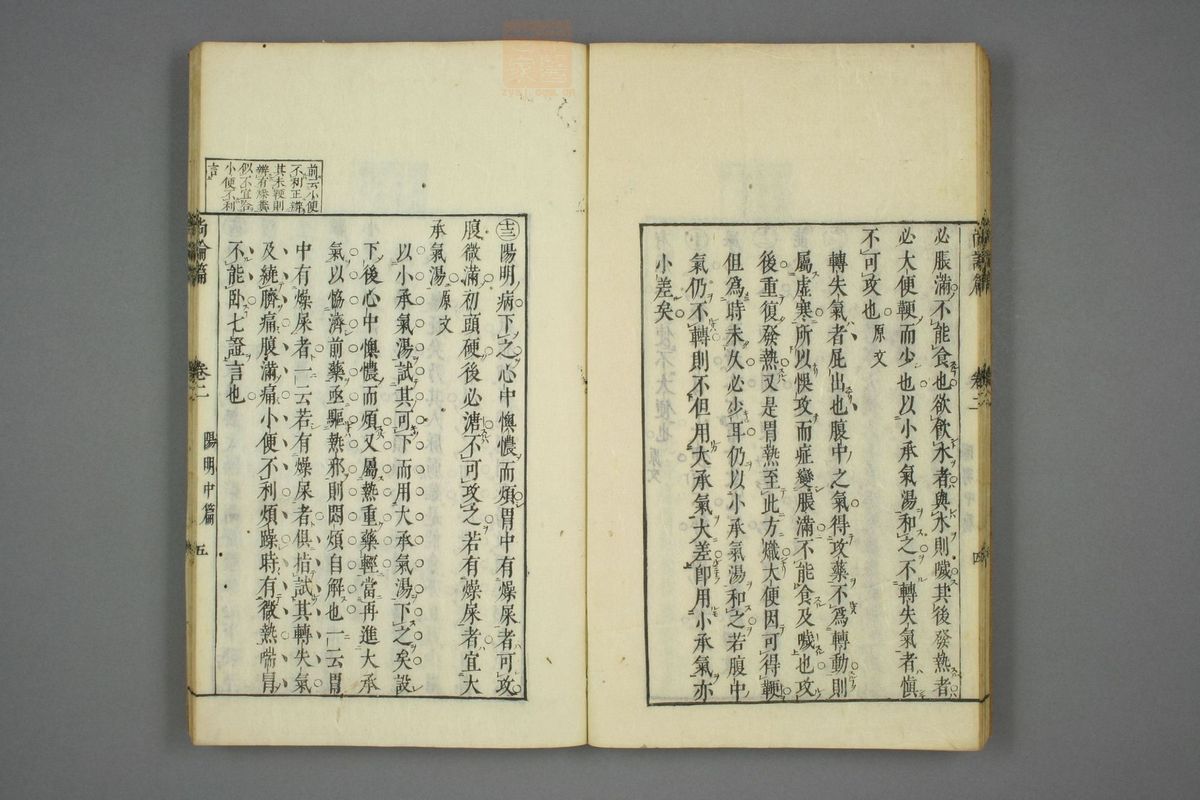 必脹滿不能食也欲飲水者與水則噦其後發熱者
必大便鞕而少也以小承氣湯和之不轉失氣者慎
不可攻也 原文
轉失氣者屁出也腹中之氣得攻藥不爲轉動則
屬虛寒所以悞攻而症變脹滿不能食及噦也攻
後重復發熱又是胃熱至此方熾大便因可得鞕
但爲時未久必少耳仍以小承氣湯和之若腹中
氣仍不轉則不但用大承氣大差卽用小承氣亦
小差矣
尚論篇 卷二 四
前云小便
不利正辨
其未鞕則
辨有燥糞
似不宜合
小便不利
言
十三 陽明病下之心中懊憹而煩胃中有燥屎者可攻
腹微滿初頭硬後必溏不可攻之若有燥屎者宜大
承氣湯 原文
以小承氣湯試其可下而用大承氣湯下之矣設
下後心中懊憹而煩又屬熱重藥輕當再進大承
氣以協濟前藥亟驅熱邪則悶煩自解也一云胃
中有燥屎者一云若有燥屎者俱指試其轉失氣
及繞臍痛腹滿痛小便不利煩躁時有微熱喘冒
不能卧七證言也
尚論篇 卷二 陽明中篇 五